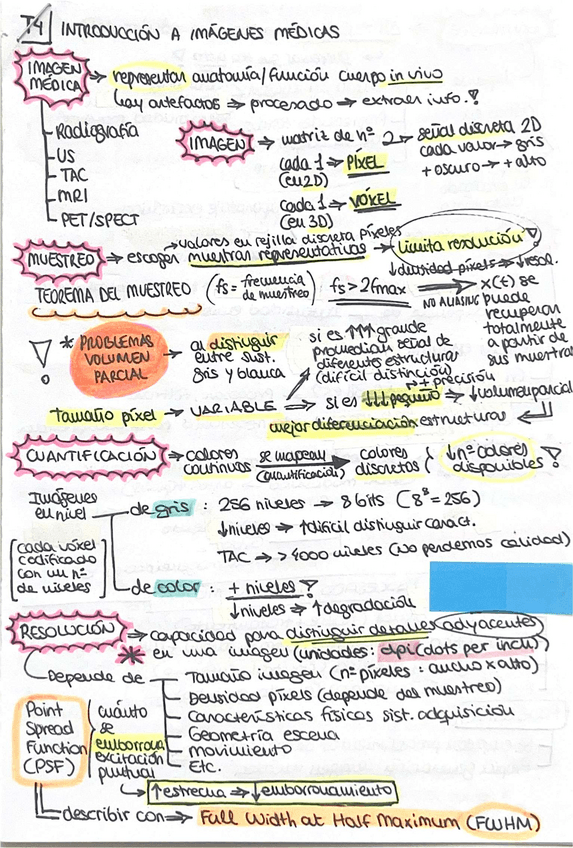 T4 INTRODUCCIÓN A IMÁGENES MÉDICAS
IMAGEN MÉDICA → representan anatomía/función cuerpo in vivo
hay artefactos ⇒ procesado → extraer info.!
Radiografía
US
TAC
MRI
PET/SPECT
IMAGEN → matriz de nº 2D → señal discreta 2D
cada valor → gris
+ oscuro → + alto
cada 1 → PÍXEL
(en 2D)
cada 1 → VÓXEL
(en 3D)
MUESTREO → escoger muestras representativas → Limita resolución!
→ valores en rejilla discreta píxeles
↓ densidad píxels ⇒ ↓ resol.
TEOREMA DEL MUESTREO (fs = frecuencia de muestreo) fs > 2fmax ⇒ x(t) se puede recuperar totalmente a partir de sus muestras
NO ALIASING
! * PROBLEMAS VOLUMEN PARCIAL → al distinguir entre sust. gris y blanca
si es ↑↑↑ grande
promedian señal de
diferentes estructuras
(difícil distinción)
Tamaño píxel → VARIABLE ⇒ si es ↓↓↓ pequeño → ↓ volumen parcial
→ + precisión
mejor diferenciación estructuras
CUANTIFICACIÓN → colores continuos se mapean (cuantificación) → colores discretos ( ↓ nº colores disponibles!
Imágenes en nivel
[cada vóxel codificado con un nº de niveles]
de gris : 256 niveles → 8 bits (8⁸ = 256)
↓ niveles → ↑ difícil distinguir caract.
TAC → > 4000 niveles (no perdemos calidad)
de color : + niveles!
↓ niveles → ↑ degradación
RESOLUCIÓN → capacidad para distinguir detalles adyacentes
* en una imagen (unidades: dpi (dots per inch))
Depende de
Tamaño imagen (nº píxeles : ancho x alto)
Densidad píxels (depende del muestreo)
Características físicas sist. adquisición
Geometría escena
movimiento
Etc.
Point Spread Function (PSF)
cuánto se emborrona excitación puntual
↑ estrecha → ↓ emborronamiento
describir con ⇒ Full Width at Half Maximum (FWHM)